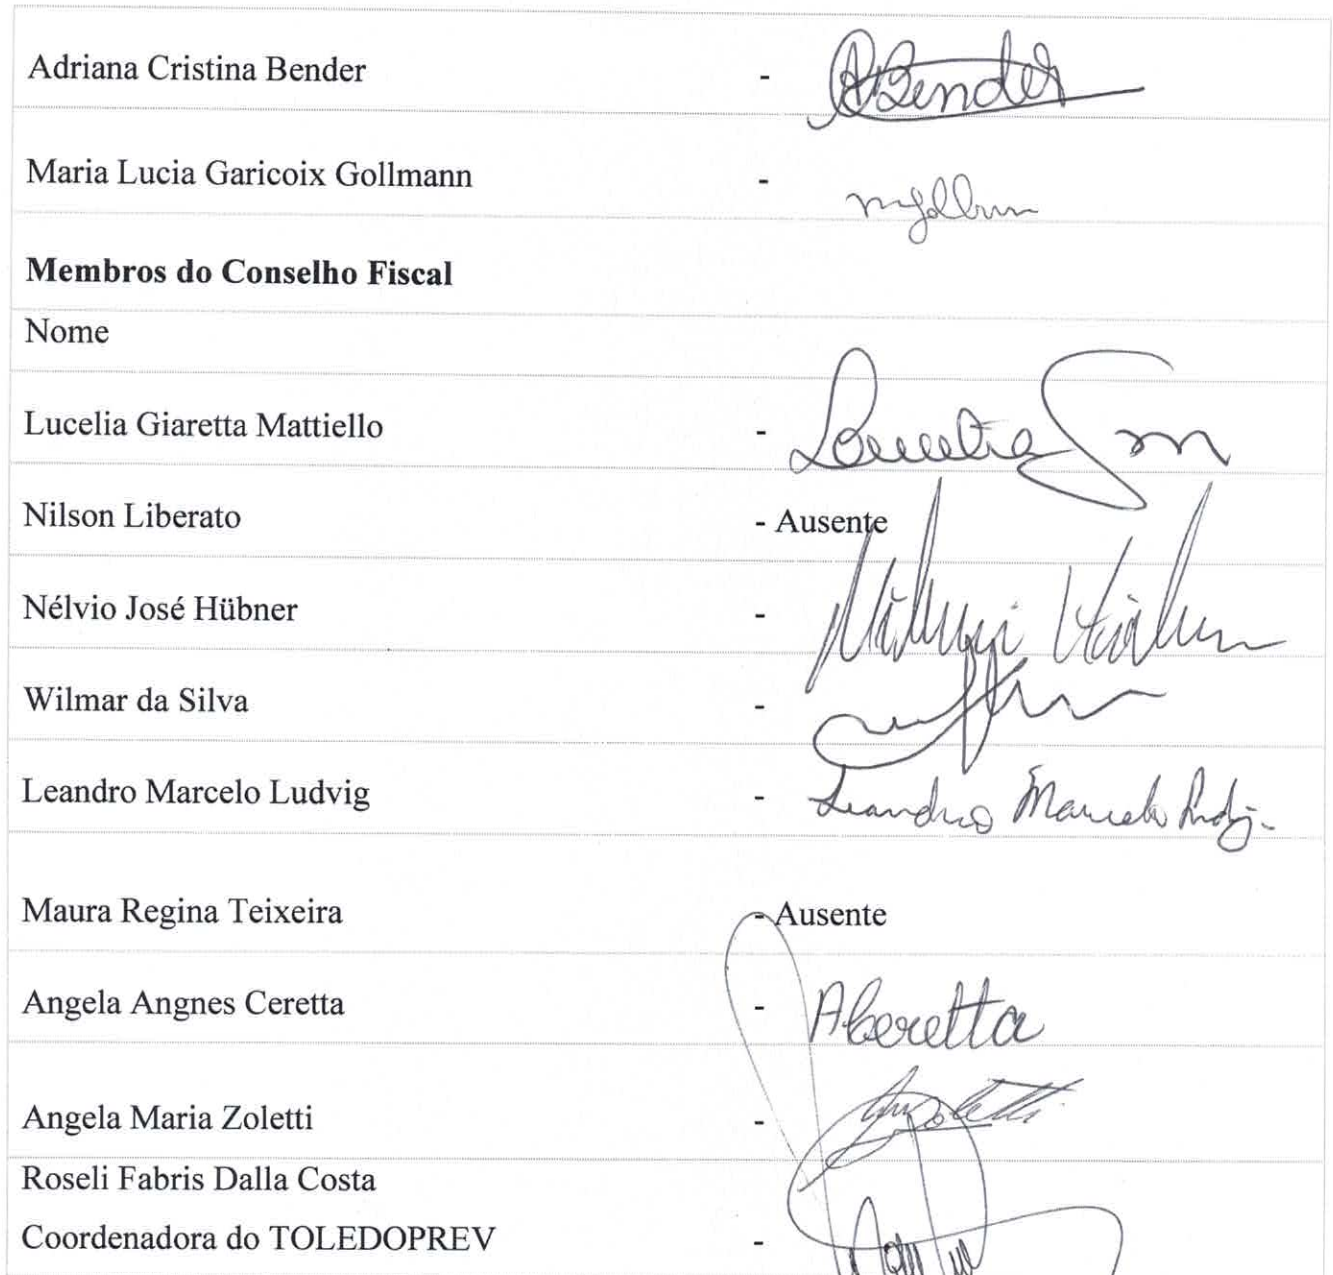 Adriana Cristina Bender - ABender
Maria Lucia Garicoix Gollmann -
Membros do Conselho Fiscal
Nome
Lucelia Giaretta Mattiello -
Nilson Liberato - Ausente
Nélvio José Hübner -
Wilmar da Silva -
Leandro Marcelo Ludvig - Leandro Marcelo
Maura Regina Teixeira - Ausente
Angela Angnes Ceretta - ACeretta
Angela Maria Zoletti -
Roseli Fabris Dalla Costa
Coordenadora do TOLEDOPREV -